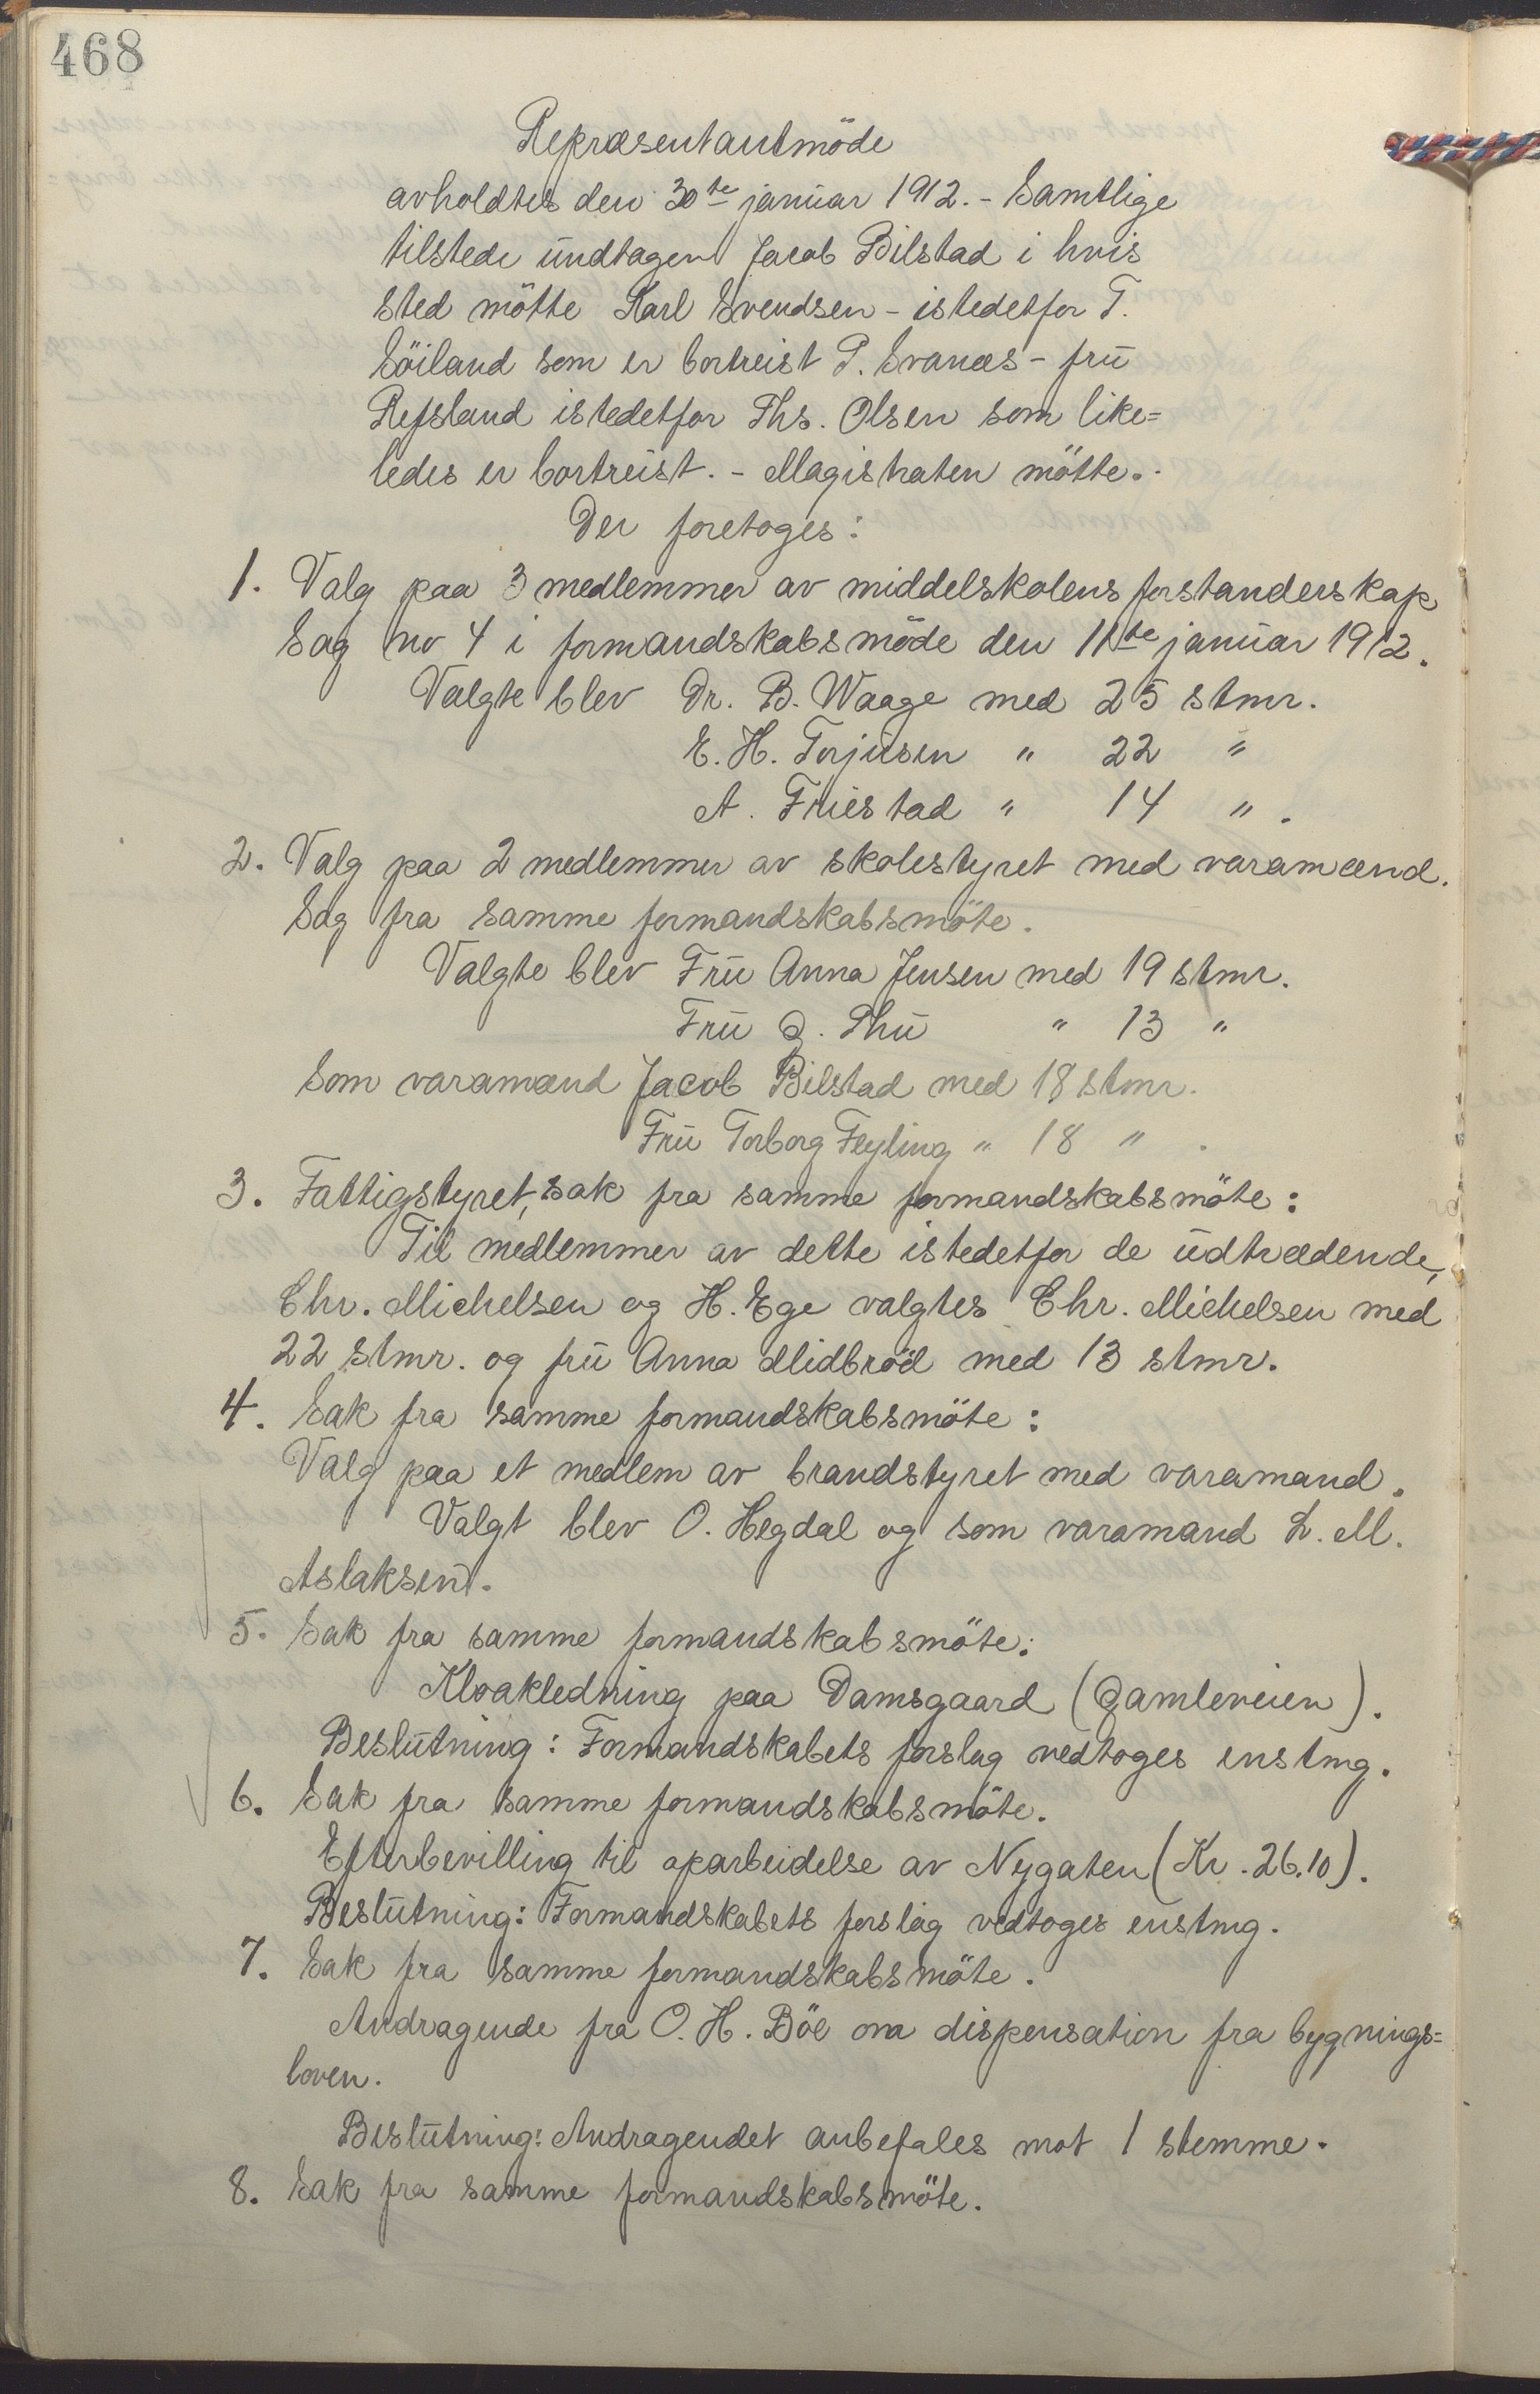 468
Repræsentantmöde
avholdtes den 30te januar 1912. - Samtlige
tilstede undtagen Jacob Bilstad i hvis
sted mötte Karl Svendsen - istedetfor T.
Söiland som er bortreist P. Svanæs - fru
Refsland istedetfor Ths. Olsen som like=
ledes er bortreist. - Magistraten mötte. -
Der foretoges:
1. Valg paa 3 medlemmer av middelskolens forstanderskap
Sag no 4 i formandskabsmöde den 11te januar 1912.
Valgte blev Dr. B. Waage med 25 stmr.
E. H. Torjusen " 22 "
A. Friestad " 14 " .
2. Valg paa 2 medlemmer av skolestyret med varamænd.
Sag fra samme formandskabsmöte.
Valgte blev Fru Anna Jensen med 19 stmr.
Fru G. Thu " 13 "
Som varamænd Jacob Bilstad med 18 stmr.
Fru Torborg Feyling " 18 " .
3. Fattigstyret, sak fra samme formandskabsmöte:
Til medlemmer av dette istedetfor de udtrædende,
Chr. Michelsen og H. Ege valgtes Chr. Michelsen med
22 stmr. og fru Anna Midbröd med 13 stmr.
4. Sak fra samme formandskabsmöte:
Valg paa et medlem av brandstyret med varamand.
Valgt blev O. Hegdal og som varamand L. M.
Aslaksen.
5. Sak fra samme formandskabsmöte:
Kloakledning paa Damsgaard (Gamleveien).
Beslutning: Formandskabets forslag vedtoges enstmg.
6. Sak fra samme formandskabsmöte.
Efterbevilling til oparbeidelse av Nygaten (Kr. 26.10).
Beslutning: Formandskabets forslag vedtoges enstmg.
7. Sak fra samme formandskabsmöte.
Andragende fra O. H. Böe om dispensation fra bygnings=
loven.
Beslutning: Andragendet anbefales mot 1 stemme.
8. Sak fra samme formandskabsmöte.